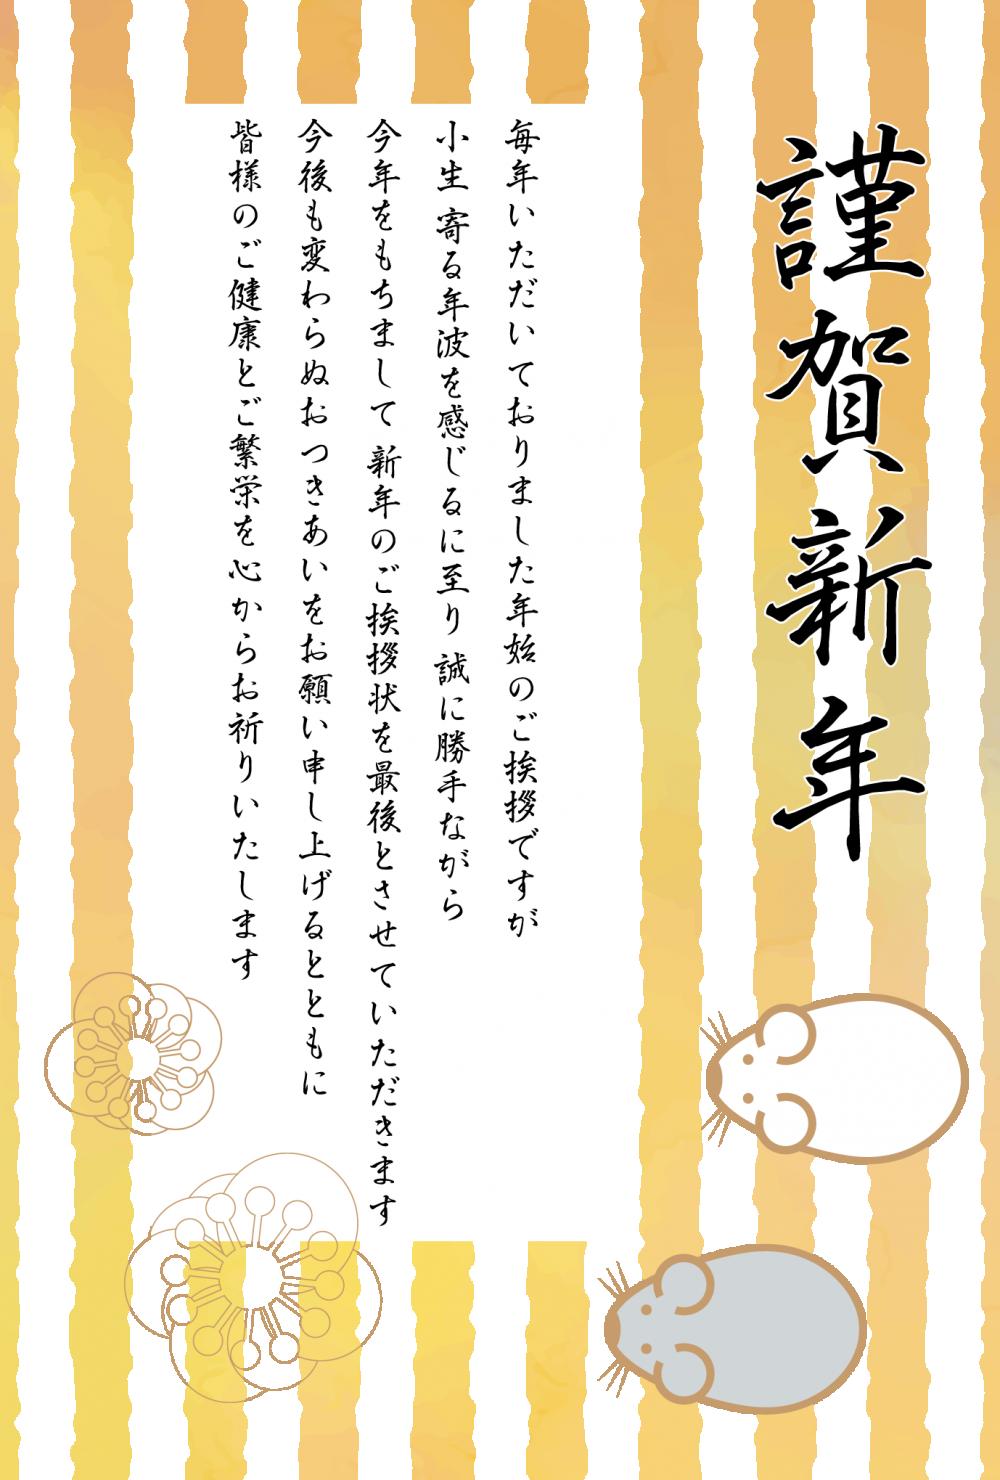 謹賀新年
毎年いただいておりました年始のご挨拶ですが
小生 寄る年波を感じるに至り 誠に勝手ながら
今年をもちまして 新年のご挨拶状を最後とさせていただきます
今後も変わらぬおつきあいをお願い申し上げるとともに
皆様のご健康とご繁栄を心からお祈りいたします